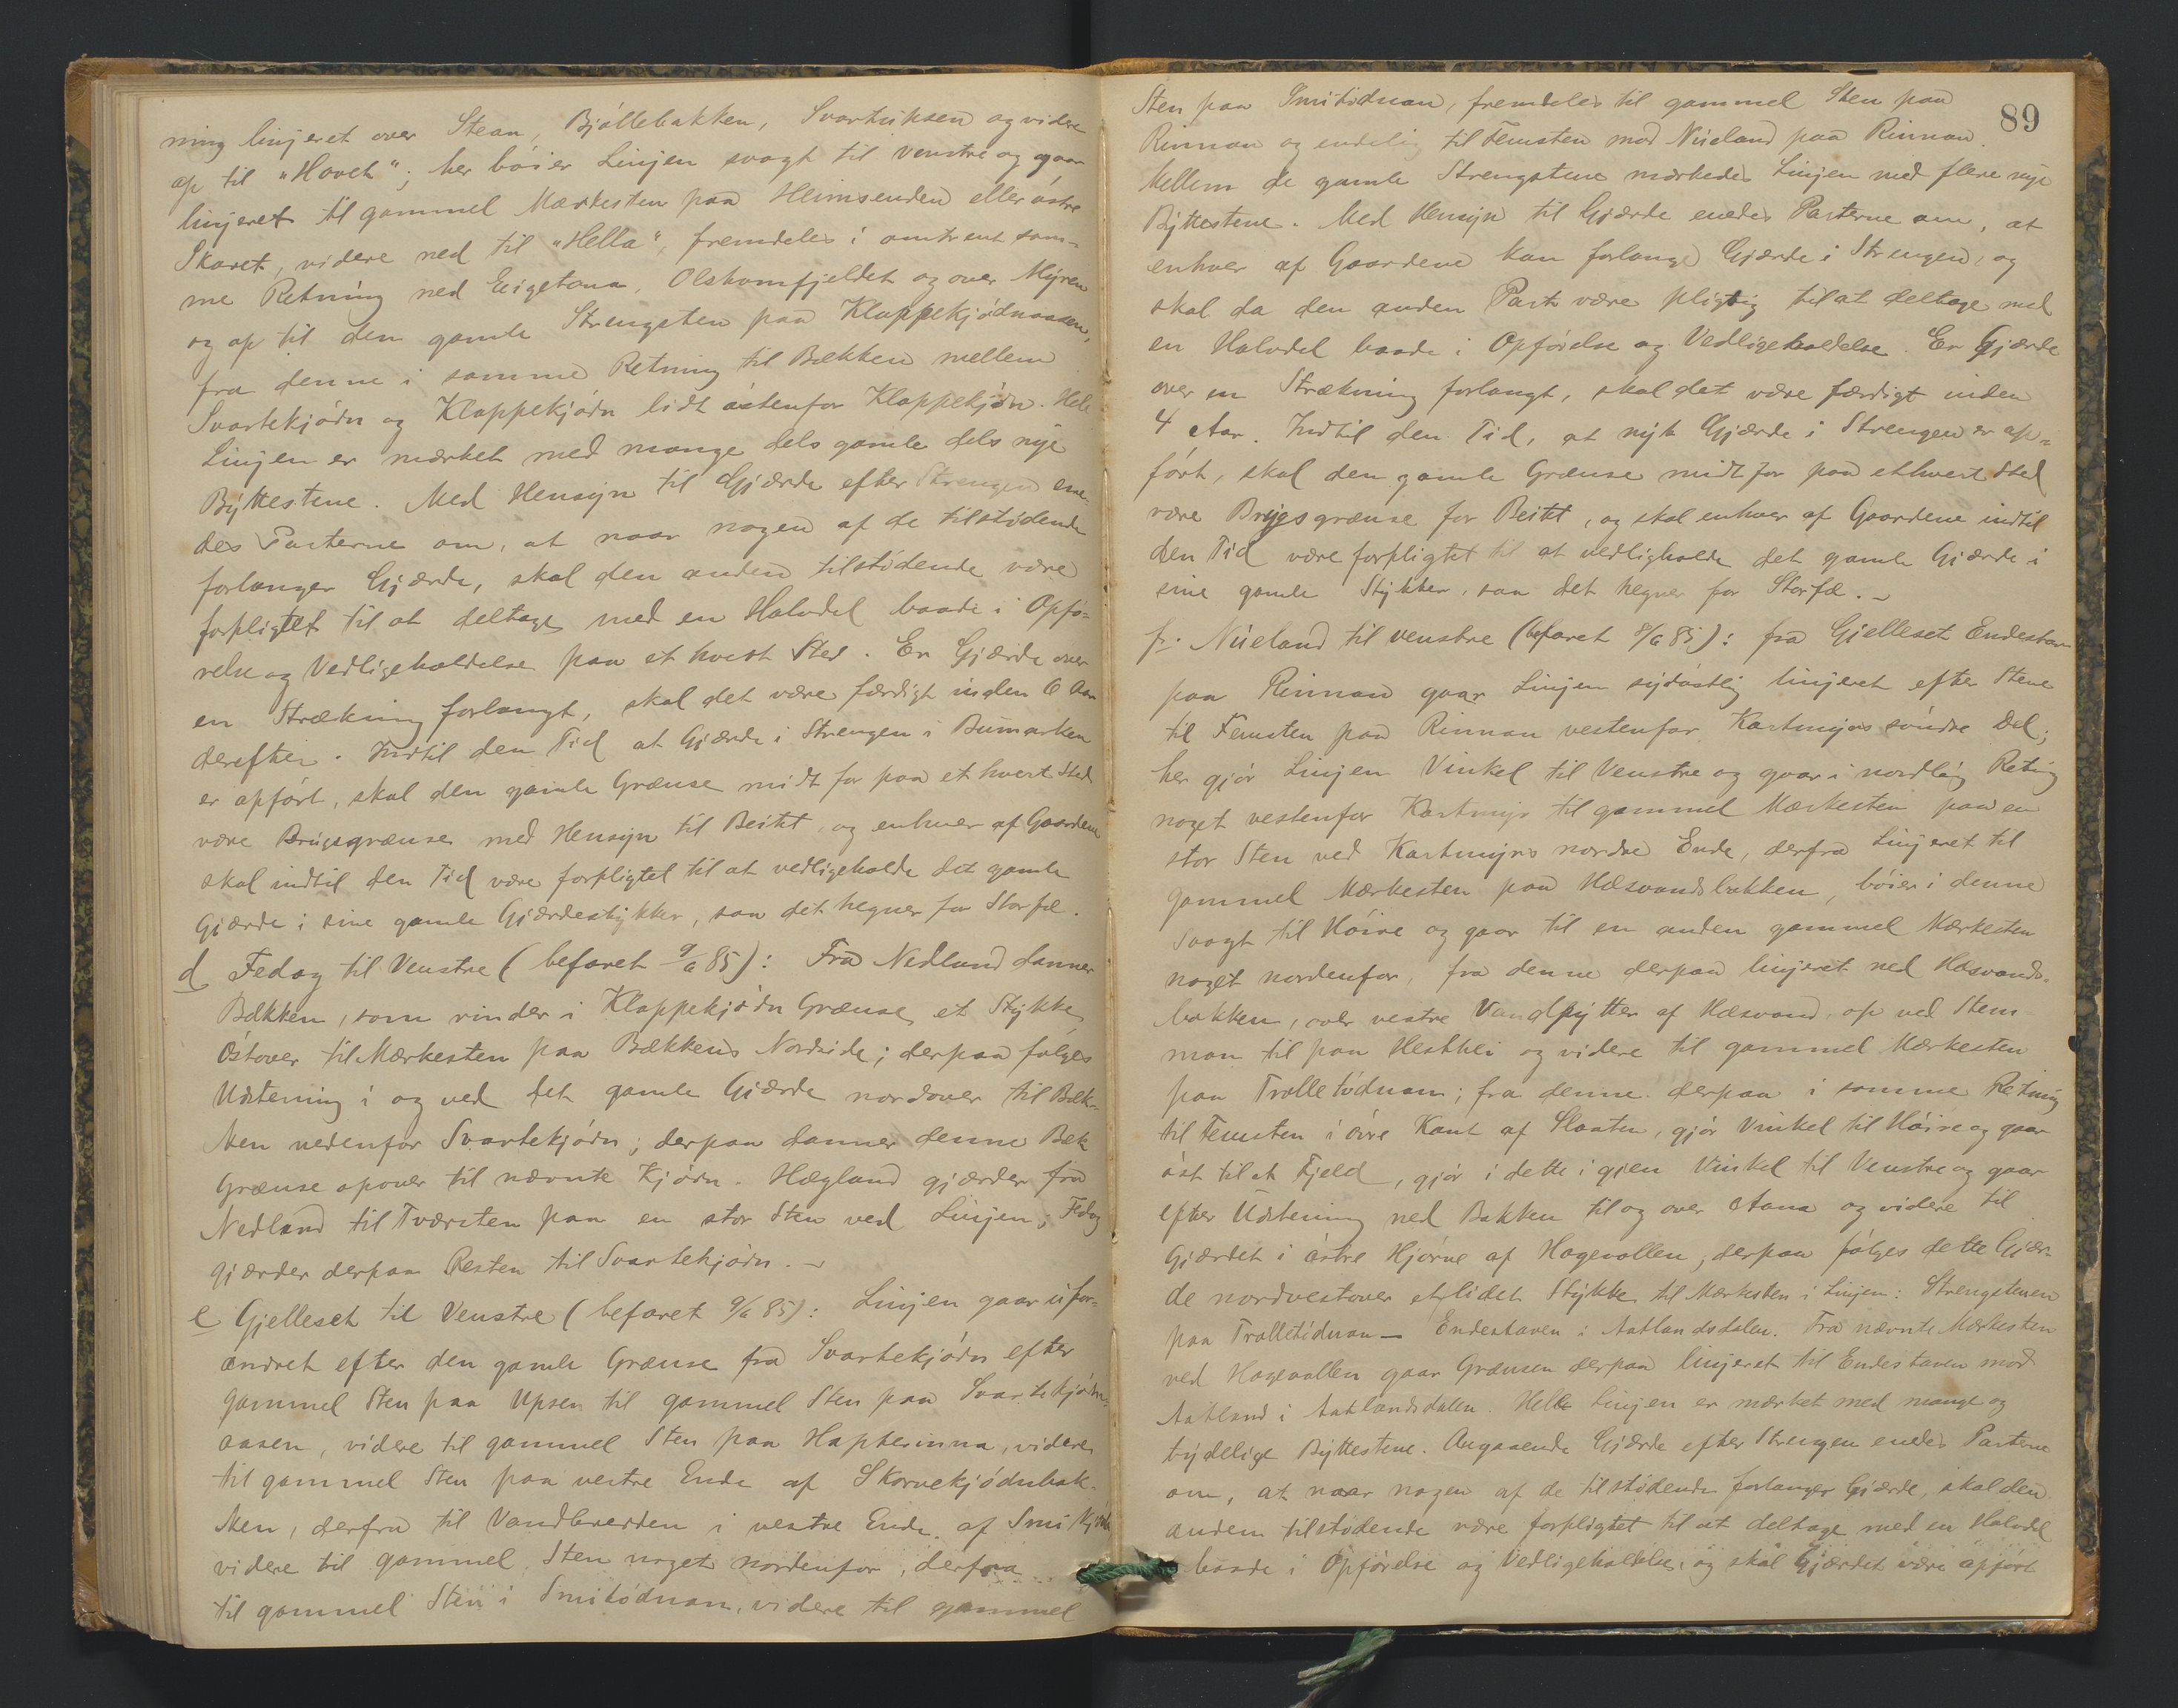 ning linjeret over Stean, Bjóllebakken, Svartufsen og videre
op til "Hovet"; her bóier Linjen svagt til venstre og gaar
linjeret til gammel Mærkesten paa Heimsenden eller óstre
Skaret, videre ned til "Hella", fremdeles i omtrent sam-
me Retning ned Eigetona, Olskomfjeldet og over Mýren
og op til den gamle Strengsten paa Klappekjódnaasen,
fra denne i samme Retning til Bækken mellem
Svartekjódn og Klappekjódn lidt óstenfor Klappekjódn. Hele
Linjen er mærket med mange dels gamle dels nýe
Býttestene. Med Hensýn til Gjærde efter Strengen ene-
des Parterne om, at naar nogen af de tilstódende
forlanger Gjærde, skal den anden tilstódende være
forpligtet til at deltage med en Halvdel baade i Opfó-
relse og Vedligeholdelse paa et hvert Sted. Er Gjærde over
en Strækning forlangt, skal det være færdigt inden 6 Aar
derefter. Indtil den Tid at Gjærde i Strengen i Bumarken
er opfórt, skal den gamle Grænse midt for paa et hvert Sted
være Brugsgrænse med Hensýn til Beitet, og enhver af Gaardene
skal indtil den Tid være forpligtet til at vedligeholde det gamle
Gjærde i sine gamle Gjærdestýkker, saa det hegner for Storfæ.
d Fedog til Venstre (befaret 9/6 85): Fra Nedland danner
Bækken, som rinder i Klappekjódn Grænse et Stýkke
Óstover til Mærkesten paa Bækkens Nordside; derpaa fólges
Udstening i og ved det gamle Gjærde nordover til Bæk-
ken nedenfor Svartekjódn; derpaa danner denne Bæk
Grænse opover til nævnte Kjódn. Hægland gjærder fra
Nedland til Tværsten paa en stor Sten ved Linjen; Fedog
gjærder derpaa Resten til Svartekjódn. –
e Gjelleset til Venstre (befaret 9/6 85): Linjen gaar ufor-
andret efter den gamle Grænse fra Svartekjódn efter
gammel Sten paa Upsen til gammel Sten paa Svartekjódn-
aasen, videre til gammel Sten paa Hapterinna, videre
til gammel Sten paa vestre Ende af Skorvekjódnbak-
ken, derfra til Vandbredden i vestre Ende af Smikjódn
videre til gammel Sten noget nordenfor, derfra
til gammel Sten i Smitódnan, videre til gammel
89
Sten paa Smitódnan, fremdeles til gammel Sten paa
Rinnan og endelig til Femsten mod Nueland paa Rinnan.
Mellem de gamle Strengstene mærkedes Linjen med flere nýe
Býttestene. Med Hensýn til Gjærde enedes Parterne om, at
enhver af Gaardene kan forlange Gjærde i Strengen, og
skal da den anden Part være pligtig til at deltage med
en Halvdel baade i Opfórelse og Vedligeholdelse. Er Gjærde
over en Strækning forlangt, skal det være færdigt inden
4 Aar. Indtil den Tid, at nýt Gjærde i Strengen er op-
fórt, skal den gamle Grænse midt for paa ethvert Sted
være Brugsgrænse for Beitet, og skal enhver af Gaardene indtil
den Tid være forpligtet til at vedligeholde det gamle Gjærde i
sine gamle Stýkker, saa det hegner for Storfæ. –
f. Nueland til venstre (befaret 8/6 85): fra Gjelleset Endestav
paa Rinnan gaar Linjen sýdóstlig linjeret efter Stene
til Femsten paa Rinnan vestenfor Kartmýrs sóndre Del;
her gjór Linjen Vinkel til Venstre og gaar i nordlig Retnig
noget vestenfor Kartmýr til gammel Mærkesten paa en
stor Sten ved Kartmýrs nordre Ende, derfra Linjeret til
gammel Mærkesten paa Hæsvandsbakken, bóier i denne
svagt til Hóire og gaar til en anden gammel Mærkesten
noget nordenfor, fra denne derpaa linjeret ned Hæsvands-
bakken, over vestre Vandpytter af Hæsvand, op ved Stem-
man til paa Hesthei og videre til gammel Mærkesten
paa Trolletódnan; fra denne derpaa i samme Retning
til Femsten i óvre Kant af Slaaten, gjór Vinkel til Hóire og gaar
óst til et Fjeld, gjór i dette igjen Vinkel til Venstre og gaar
efter Udstening ned Bakken til og over Aana og videre til
Gjærdet i óstre Hjórne af Hagevollen, derpaa fólges dette Gjær-
de nordvestover et lidet Stýkke til Mærkesten i Linjen: Strengstenen
paa Trolletódnan – Endestaven i Aatlandsdalen. Fra nævnte Mærkesten
ved Hagevollen gaar Grænsen derpaa linjeret til Endestaven mod
Aatland i Aatlandsdalen. Hele Linjen er mærket med mange og
týdelige Býttestene. Angaaende Gjærde efter Strengen enedes Parterne
om, at naar nogen af de tilstódende forlanger Gjærde, skal den
anden tilstódende være forpligtet til at deltage med en Halvdel
baade i Opfórelse og Vedligeholdelse, og skal Gjærdet være opfórt